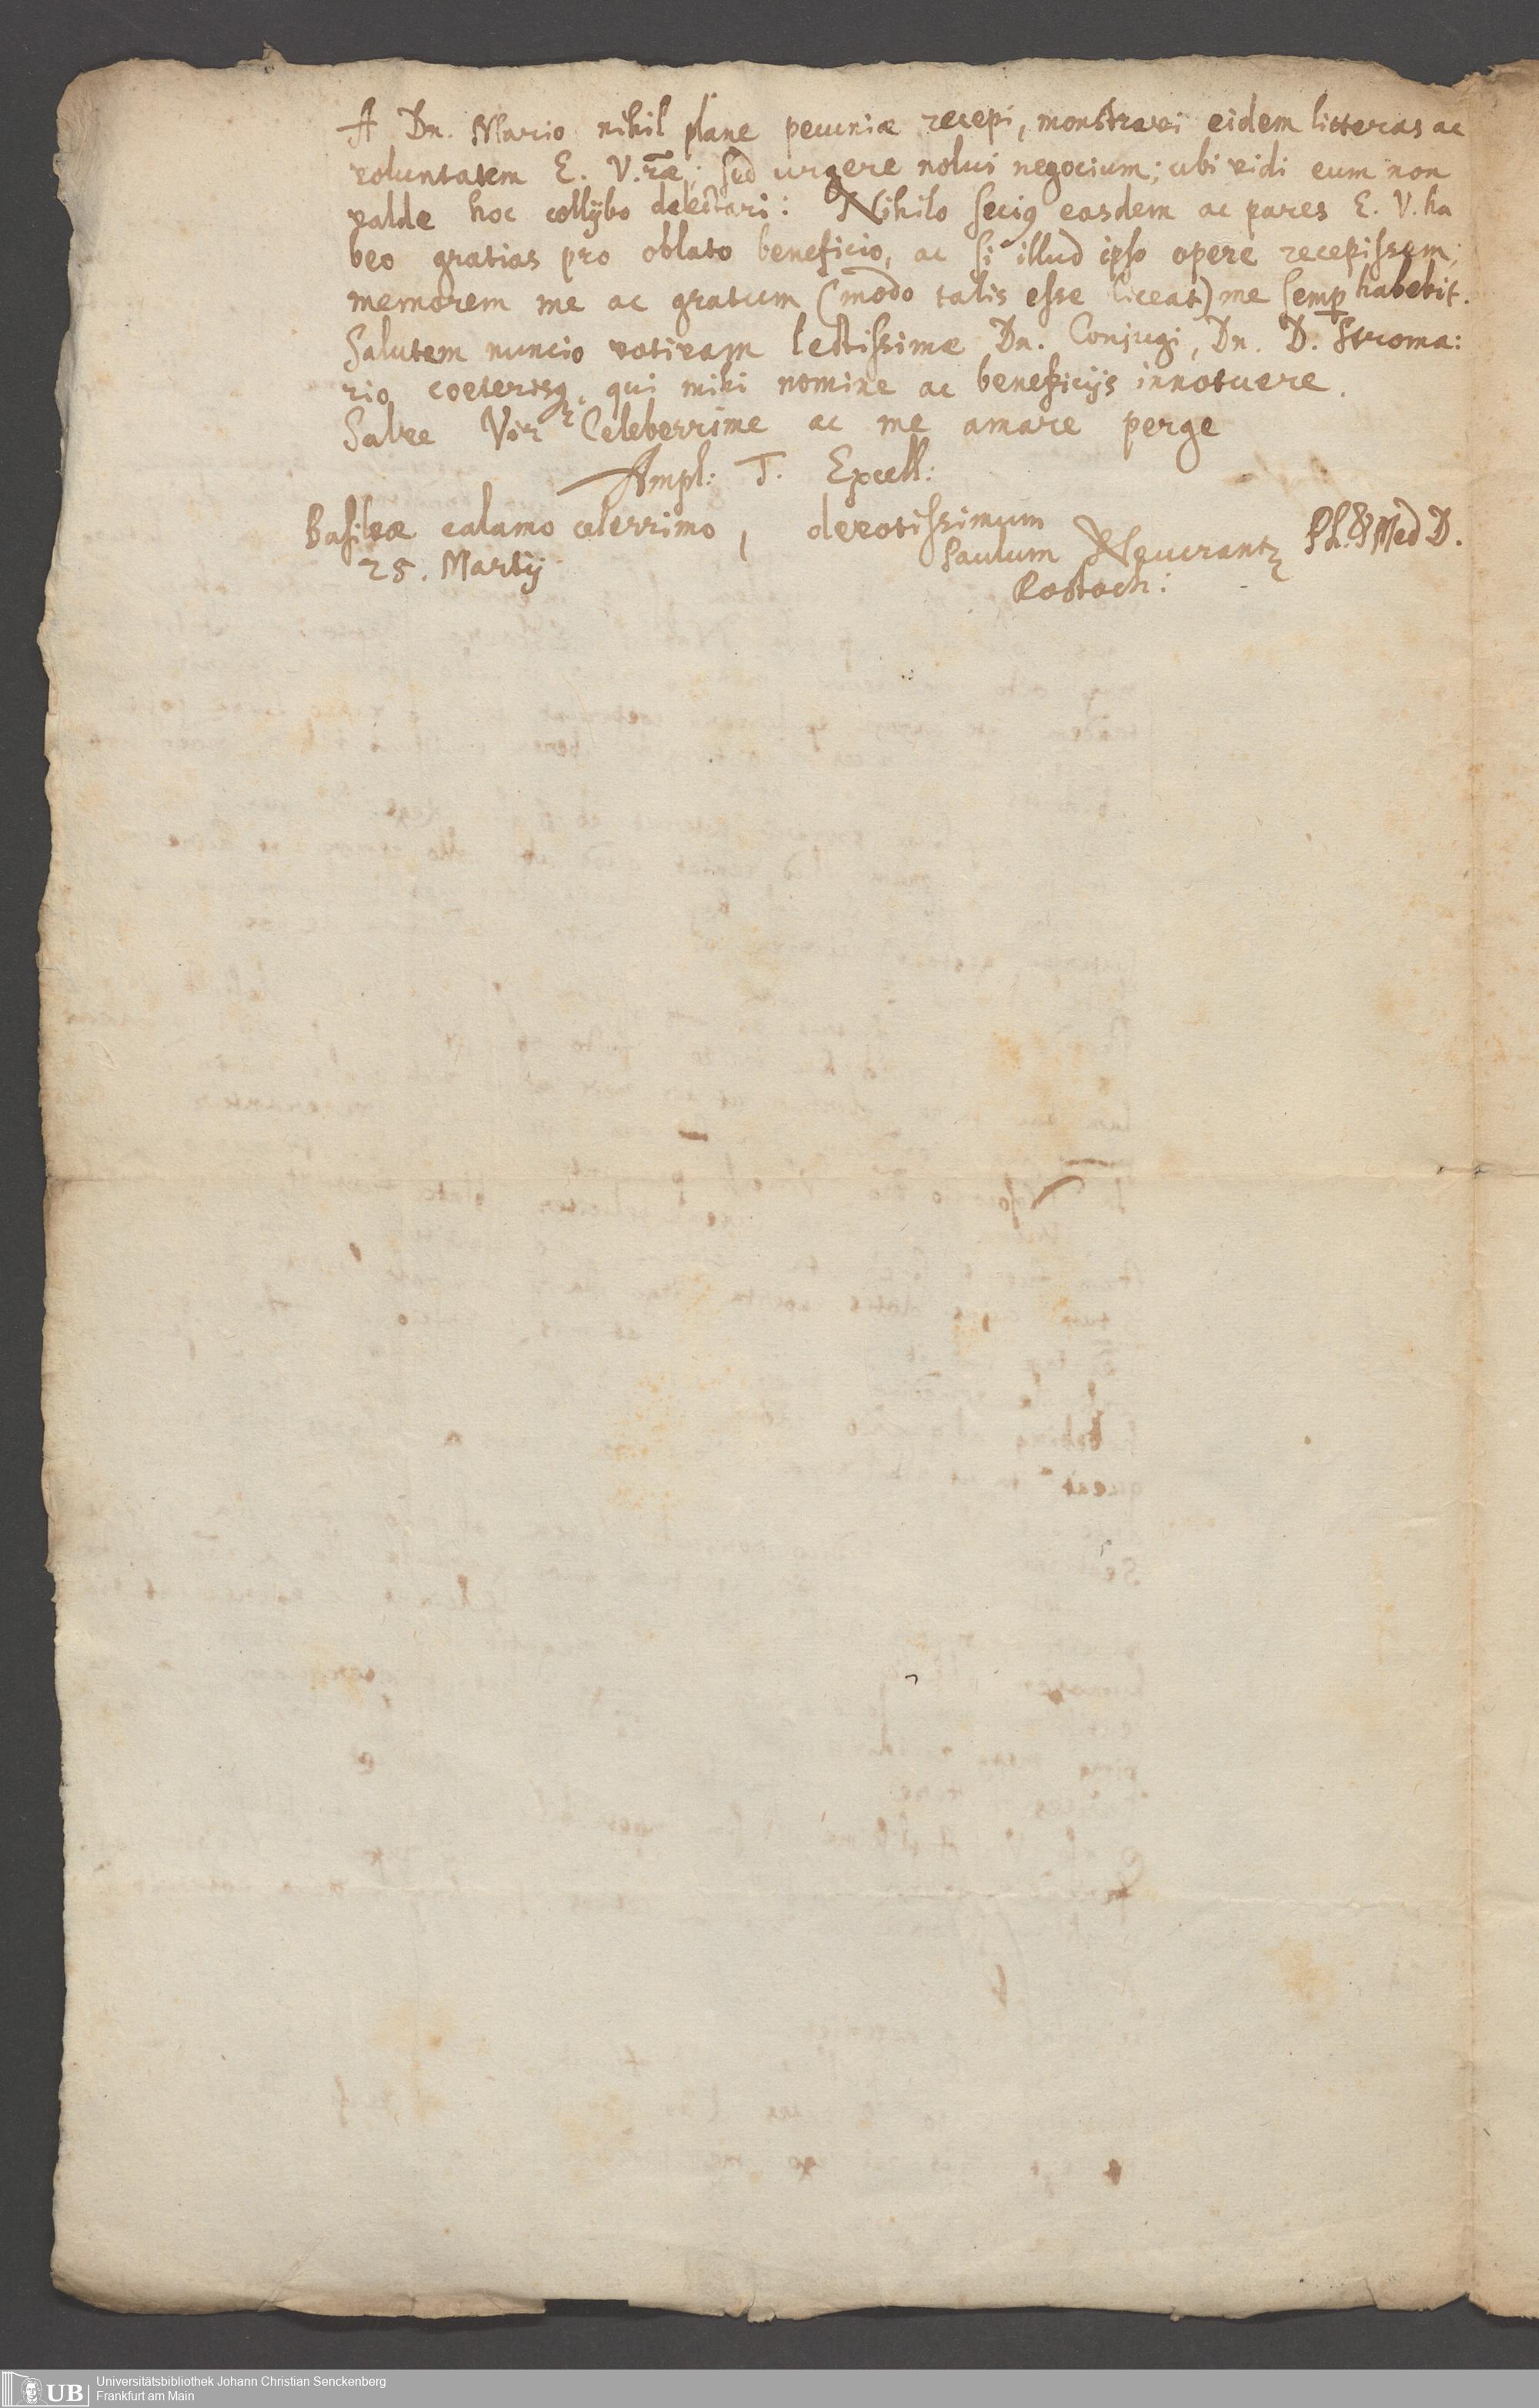 A Dn. Mario nihil plane pecuniæ recepi, monstravi eidem litteras ac
voluntatem E. V.ræ; sed urgere nolui negocium; ubi vidi eum non
valde hoc collybo delectari: Nihilo seciꝰ easdem ac pares E. V. ha
beo gratias pro oblato beneficio, ac si illud ipso opere recepissem;
memorem me ac gratum (modo talis esse liceat) me semꝑ habebit.
Salutem nuncio votivam lectissimæ Dn. Conjugi, Dn. D. Stroma:
rio coeterisq, qui mihi nomine ac beneficijs innotuere.
Salve Vir Celeberrime ac me amare perge
Ampl: T. Excell:
Basileæ calamo celerrimo, devotissimum
25. Martij Paulum Neucrantz Ph. & Med D.
Rostoch:
UB Universitätsbibliothek Johann Christian Senckenberg
Frankfurt am Main